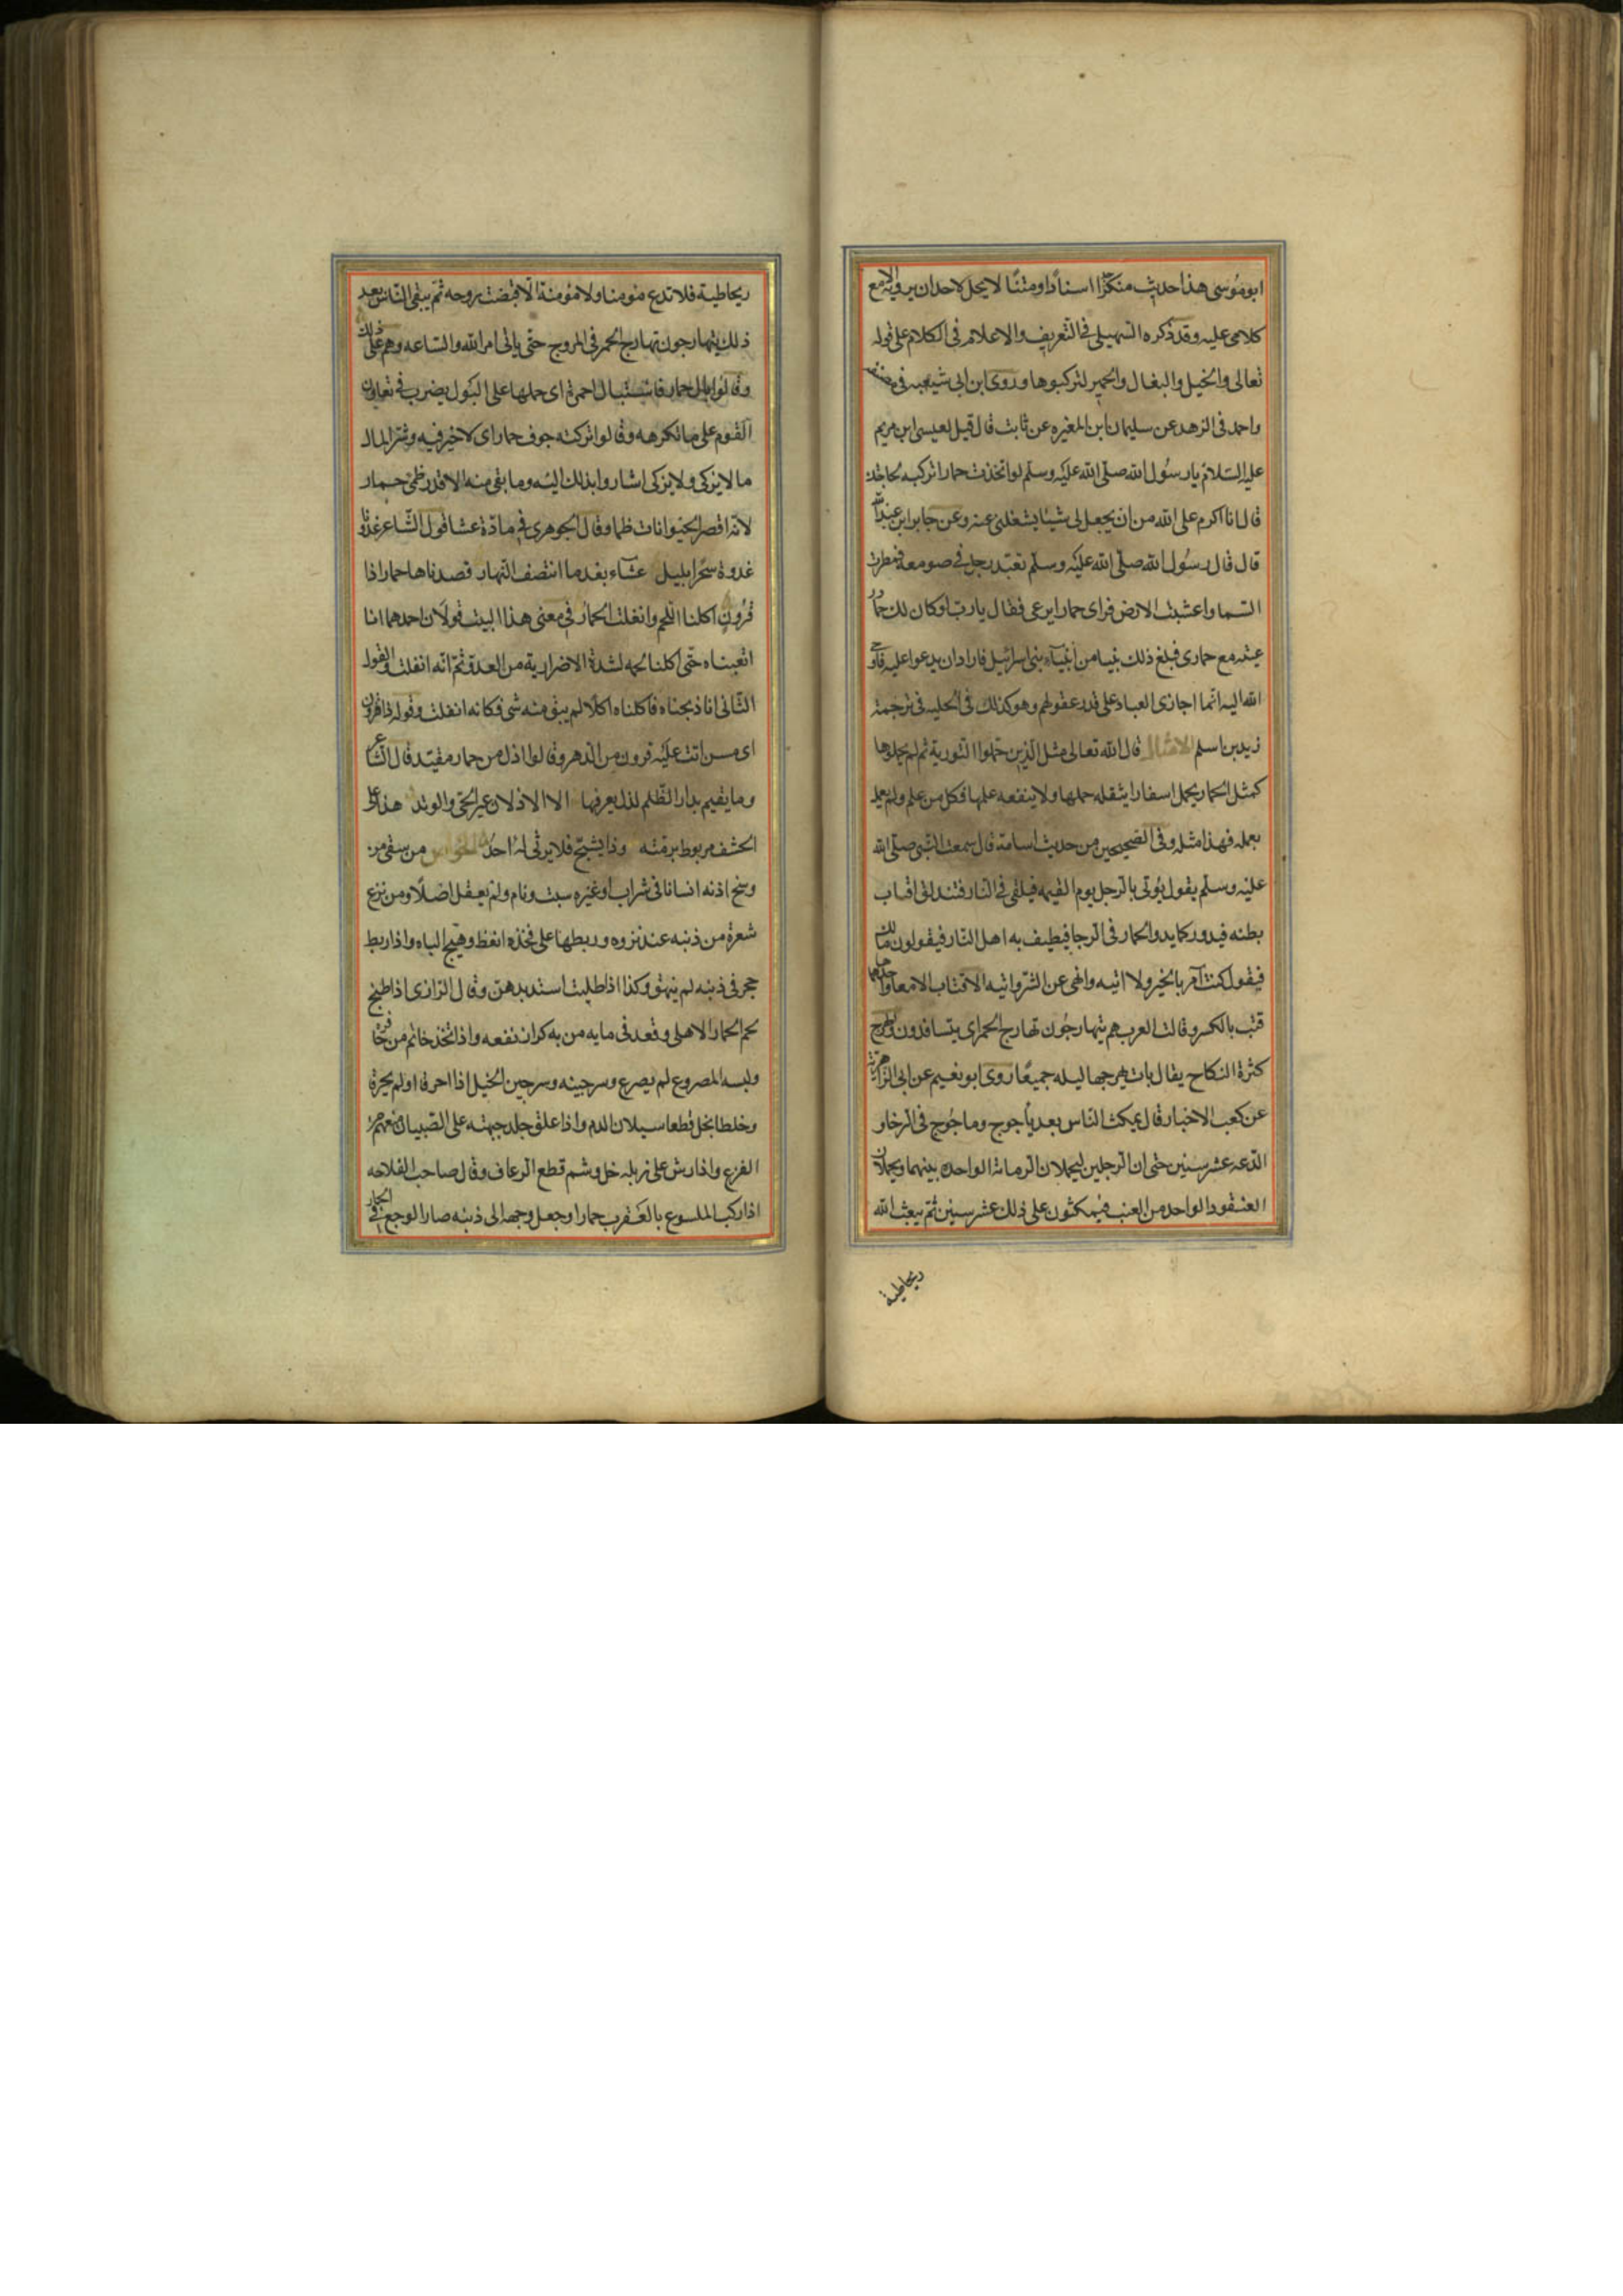 ابو موسى هذا حديث منكر جدا اسنادا ومتنا لا يحل لاحد ان يرويه الا مع
كلامى عليه وقد ذكره السهيلى فى التعريف والاعلام فى الكلام على قوله
تعالى والخيل والبغال والحمير لتركبوها وروى ابن ابى شيبه فى مصنفه
واحمد فى الزهد عن سليمان ابن المغيره عن ثابت قال قيل لعيسى ابن مريم
عليه السلام يا رسول الله صلى الله عليه وسلم لو اتخذت حمارا تركبه لحاجتك
قال انا اكرم على الله من ان يجعل لى شيئا يشغلنى عنه وعن جابر ابن عبد الله
قال قال رسول الله صلى الله عليه وسلم تعبد رجل فى صومعه فمطرت
السما واعشبت الارض فراى حمارا يرعى فقال يا رب لو كان لك حمار
عيته مع حمارى فبلغ ذلك نبيا من أنبياء بنى اسرائيل فاراد ان يدعوا عليه فاوحى
الله اليه انما اجازى العباد على قدر عقولهم وهو كذلك فى الحليه فى ترجمة
زيد بن اسلم الامثال قال الله تعالى مثل الذين حملوا التورية ثم لم يحملوها
كمثل الحمار يحمل اسفارا يثقله حملها ولا ينفعه علمها فكل من علم ولم يعمل
بعلمه فهذا مثله وفى الصحيحين من حديث اسامة قال سمعت النبى صلى الله
عليه وسلم يقول يؤتى بالرجل يوم القيمه فيلقى فى النار فتندلق اقتاب
بطنه فيدور كما يدور الحمار فى الرحا فيطيف به اهل النار فيقولون مالك
فيقول كنت آمر بالخير ولا اتيه وانهى عن الشر واتيه الاقتاب الامعا واحدها
قتب بالكسر وقالت العرب هم يتهارجون تهارج الحمر اى يتسافدون والهرج
كثرة النكاح يقال بات يهرجها ليله جميعا روى ابو نعيم عن ابى الزاهرية
عن كعب الاحبار قال يمكث الناس بعد يأجوج ومأجوج فى الرخا و
الدعه عشر سنين حتى ان الرجلين ليحملان الرمانة الواحده بينهما ويحملان
العنقود الواحد من العنب فيمكثون على ذلك عشر سنين ثم يبعث الله
ريحا طيبة
ريحا طيبة فلا تدع مؤمنا ولا مؤمنة الا قبضت روحه ثم يبقى الناس بعد
ذلك يتهارجون تهارج الحمر فى المروج حتى ياتى امر الله والساعه وهم على ذلك
وقالوا بال حمار فاستبال احمرة اى حملها على البول يضرب فى تعاون
القوم على ما تكرهه وقالوا تركته جوف حمار اى لا خير فيه وشر المال
ما لا يزكى ولا يذكى اشاروا بذلك اليه وما بقى منه الا قدر ظمئ حمار
لانه اقصر الحيوانات ظما وقال الجوهرى فى مادة عشا قول الشاعر غدونا
غدوة سحرا بليل عشاء بعد ما انتصف النهار قصدناها حمارا ذا
قرون اكلنا اللحم وانفلت الحمار فى معنى هذا البيت قولان احدهما انا
اتعبناه حتى اكلنا لحمه لشدة الاضرار به من العدو ثم انه انفلت والقول
الثانى انا ذبحناه فاكلناه اكلا لم يبق منه شى فكانه انفلت وقوله ذا قرون
اى مسن اتت عليه قرون من الدهر وقالوا اذل من حمار مقيد قال الشاعر
وما يقيم بدار الظلم لذل يعرفها الا الاذلان عير الحى والوتد هذا على
الخشف مربوط برمته وذا يشج فلا يرثى له احد الخواص من سقى من
وسخ اذنه انسانا فى شراب او غيره سبت ونام ولم يعقل اصلا ومن نزع
شعرة من ذنبه عند نزوه وربطها على فخذه انغظ وهيج الباه واذا ربط
حجر فى ذنبه لم ينهق وكذا اذا طليت استه بدهن وقال الرازى اذا طبخ
لحم الحمار الاهلى وقعد فى مايه من به كزاز نفعه واذا اتخذ خاتم من حافره
ولبسه المصروع لم يصرع وسرجينه وسرجين الخيل اذا احرقا او لم يحرقا
وخلطا بخل قطعا سيلان الدم واذا علق جلد جبهته على الصبيان منعهم من
الفزع واذا رش على زبله خل وشم قطع الرعاف وقال صاحب الفلاحه
اذا ركب الملسوع بالعقرب حمارا وجعل وجهه الى ذنبه صار الوجع فى الحمار